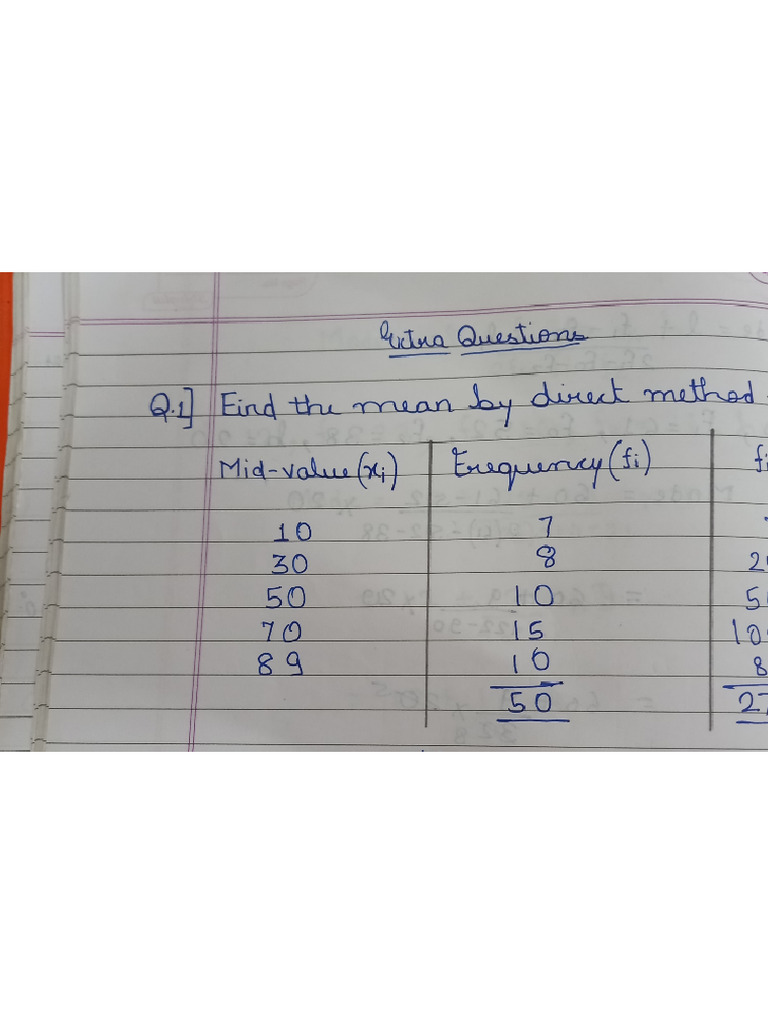 Extra Questions
Q.1] Find the mean by direct method
Mid-value (xi) Frequency (fi) fi
10 7
30 8 2
50 10 5
70 15 10
89 10 8
50 27